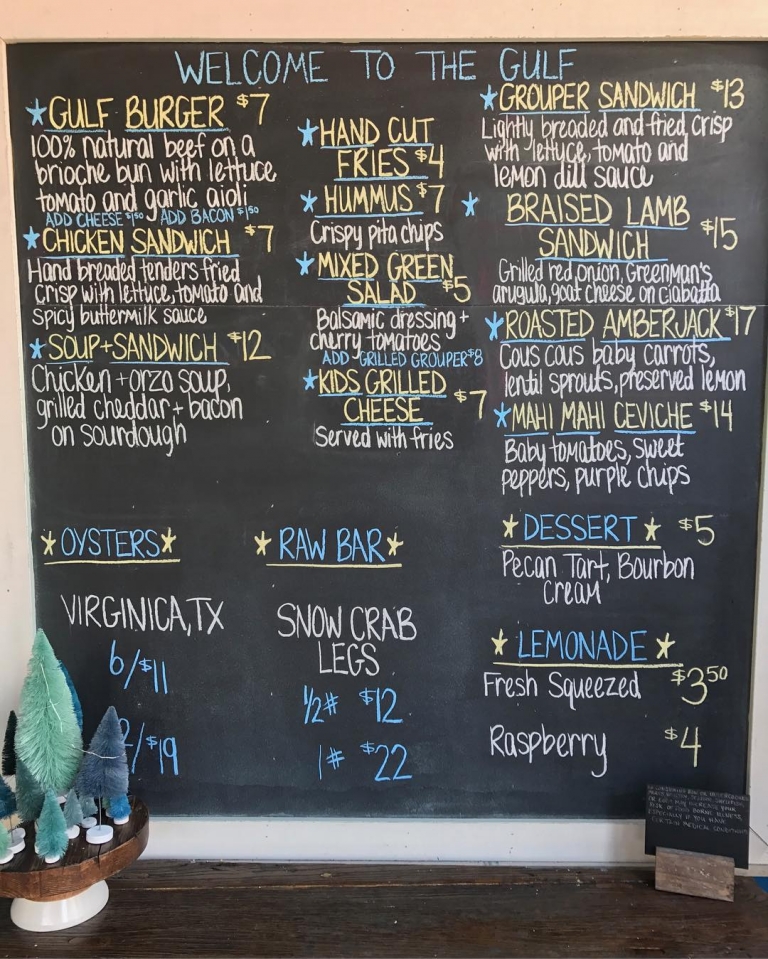 WELCOME TO THE GULF
GULF BURGER $7
100% natural beef on a
brioche bun with lettuce
tomato and garlic aioli
ADD CHEESE $1.50 ADD BACON $1.50
CHICKEN SANDWICH $7
Hand breaded tenders fried
crisp with lettuce, tomato and
spicy buttermilk sauce
SOUP+SANDWICH $12
Chicken + orzo soup,
grilled cheddar + bacon
on sourdough
HAND CUT
FRIES $4
HUMMUS $7
Crispy pita chips
MIXED GREEN
SALAD $5
Balsamic dressing +
cherry tomatoes
ADD GRILLED GROUPER $8
KIDS GRILLED
CHEESE $7
Served with fries
GROUPER SANDWICH $13
Lightly breaded and fried, crisp
with lettuce, tomato and
lemon dill sauce
BRAISED LAMB
SANDWICH $15
Grilled red onion, Greenman's
arugula, goat cheese on ciabatta
ROASTED AMBERJACK $17
Cous cous baby carrots,
lentil sprouts, preserved lemon
MAHI MAHI CEVICHE $14
Baby tomatoes, sweet
peppers, purple chips
OYSTERS
VIRGINICA, TX
6/$11
2/$19
RAW BAR
SNOW CRAB
LEGS
1/2# $12
1# $22
DESSERT $5
Pecan Tart, Bourbon
Cream
LEMONADE
Fresh Squeezed $3.50
Raspberry $4